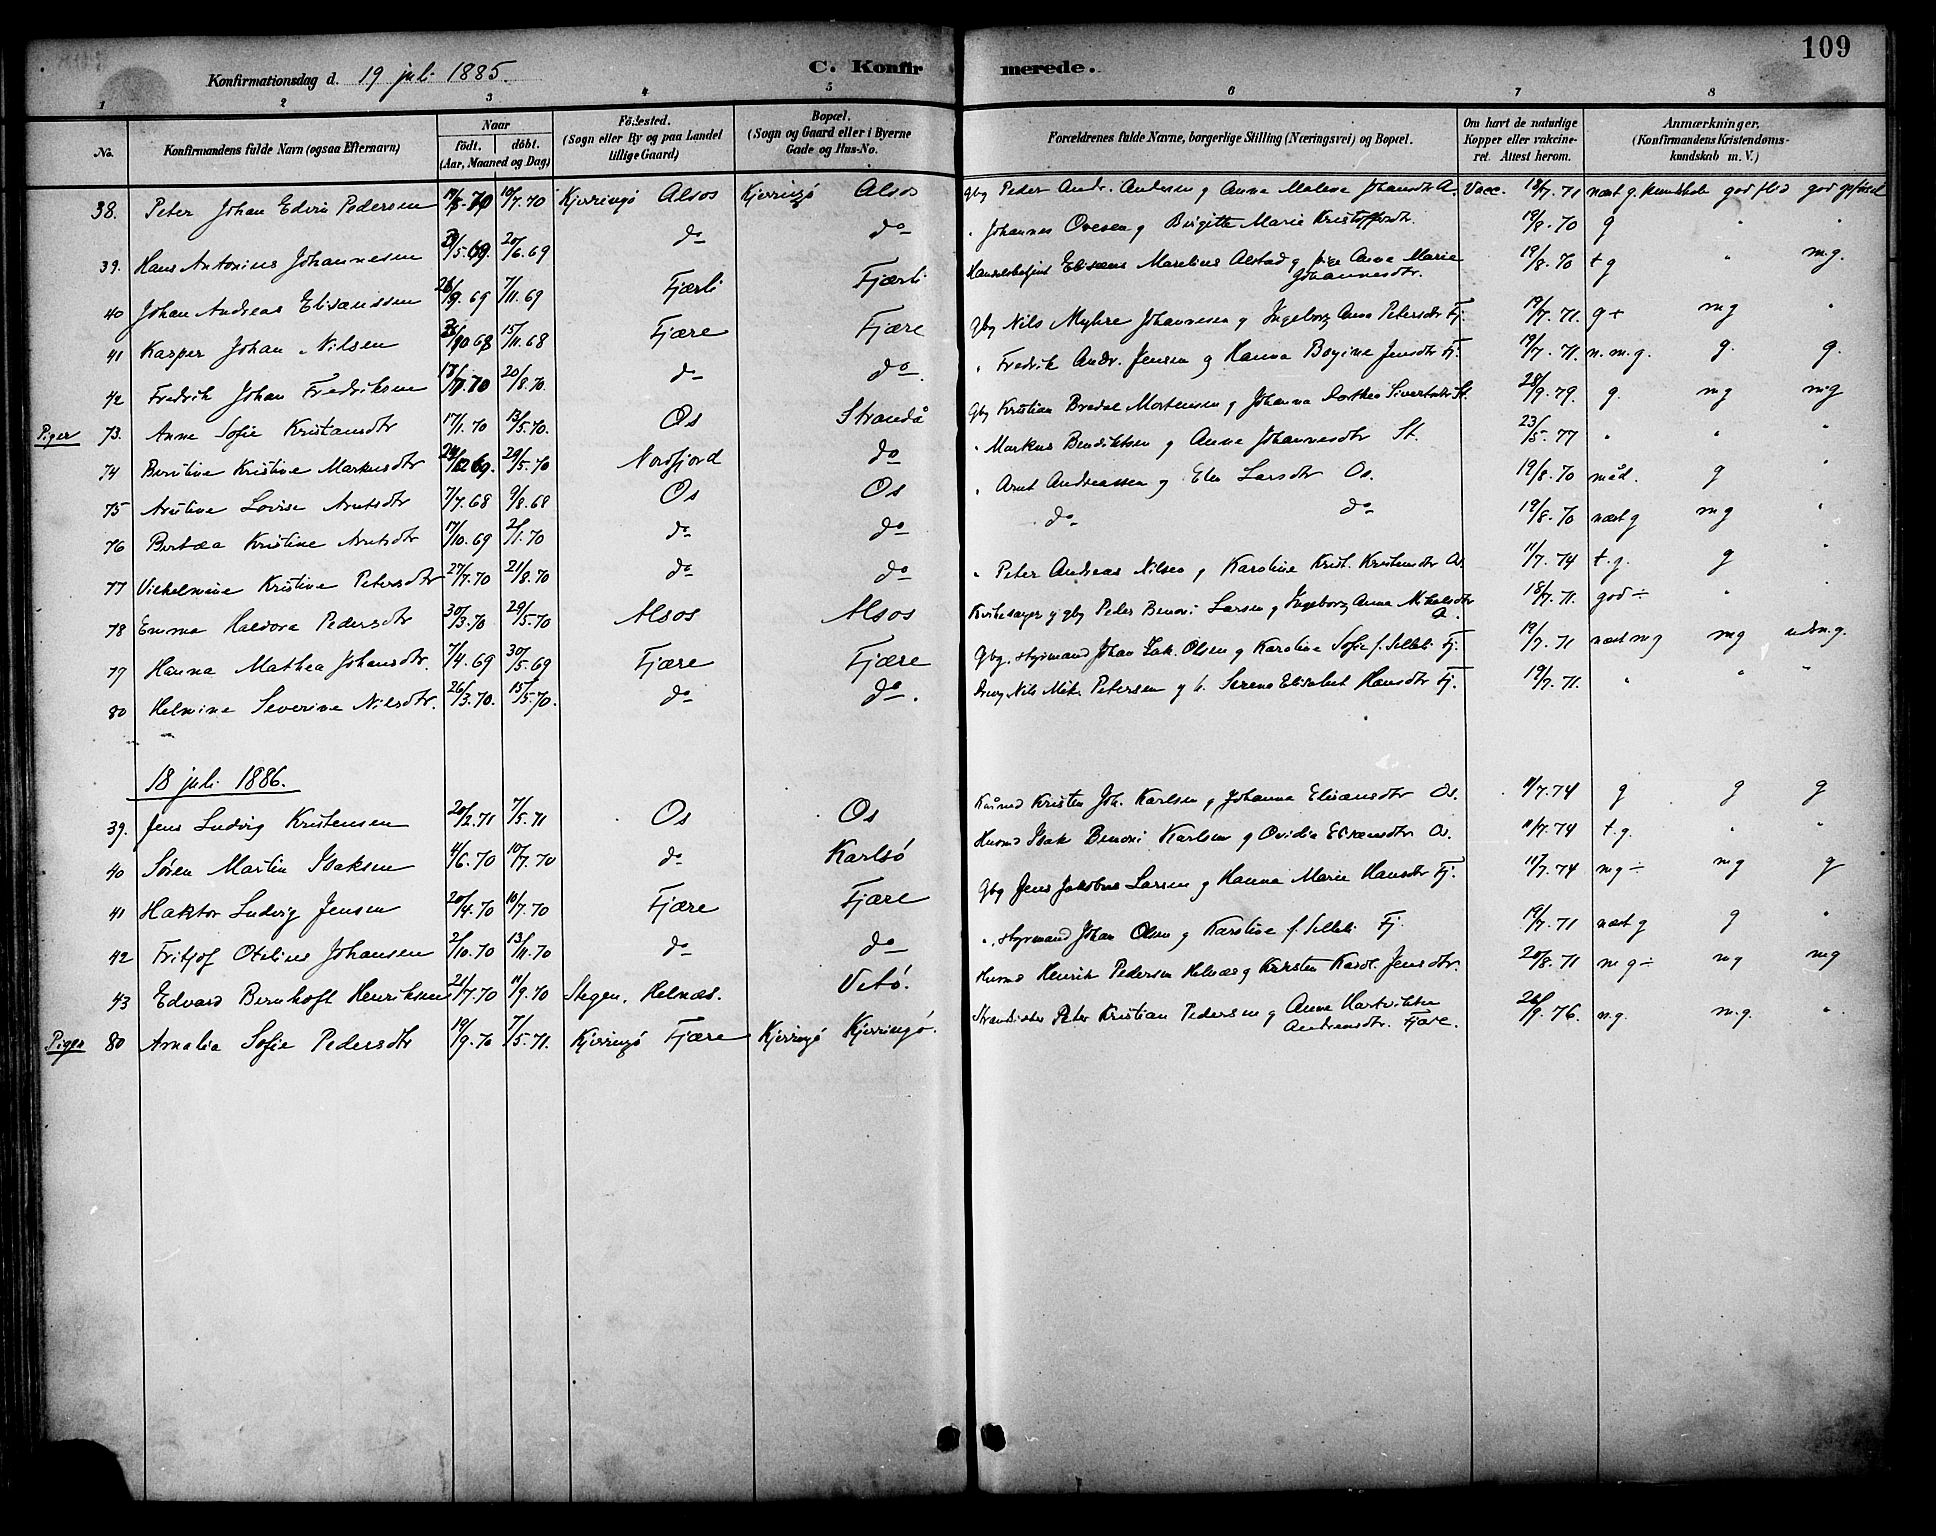 109
Konfirmationsdag d. 19 juli 1885. C. Konfirmerede.
1 2 3 4 5 6 7 8
No. Konfirmandens fulde Navn (ogsaa Efternavn) Naar födt. döbt. (Aar, Maaned og Dag) Födested. (Sogn eller By og paa Landet tillige Gaard) Bopæl. (Sogn og Gaard eller i Byerne Gade og Hus-No. Forældrenes fulde Navne, borgerlige Stilling (Næringsvei) og Bopæl. Om havt de naturlige Kopper eller vakcineret. Attest herom. Anmærkninger, (Konfirmandens Kristendomskundskab m. V.)
38. Peter Johan Edvin Pedersen 10/7.70 Kjerringö Alsos Kjerringö Alsos Gbg Peder Andr. Andersen g Anna Malene Johansdtr A. Vacc. 18/7.71 næst g. kundskab god flid god opförsel
39. Hans Antonius Johannesen 20/6.69 do do " Johannes Ovesen g Birgitte Marie Kristoffersdtr. 19/8.70 g " "
40 Johan Andreas Elisæussen 26/9.69 7/11.69 Fjærli Fjærli Elisæus Marelius Alstad g Anne Marie Johannesdtr. 19/8.70 tg " mg.
41 Kasper Johan Nilsen 15/11.68 Fjære Fjære Gbg Nils Myhre Johannesen g Ingeborg Anna Petersdtr Fj. 19/7.71. g+ mg "
42 Fredrik Johan Fredriksen 20/8.70. do do. " Fredrik Andr. Jensen g Hanna Bogine Jensdtr Fj. 19/7.71. n.m.g. g. g.
Piger 73. Anne Sofie Kristiansdtr 17/1.70 13/5.70. Os Strandå Gbg Kristian Bredal Mortensen g Johanna Dorthea Sivertsdtr St. 28/9.79. g. mg mg
74 Berntine Kristine Markusdtr 29/5.70 Nordfjord do " Markus Bendiktsen g Anne Johannesdtr St. 23/5.77 " " "
75 Arntine Lovise Arntsdtr 7/7.68 9/8.68 Os Os " Arnt Andreassen g Elen Larsdtr Os. 19/8.70 måd. g "
76 Bertæa Kristine Arntsdtr 17/10.69 2/1.70 do do do do 19/8.70 næst g mg "
77 Vilhelmine Kristine Petersdtr 27/7.70 21/8.70 do do " Peter Andreas Nilsen g Karoline Krist. Kristensdtr Os 11/7.74 t.g. g "
78 Emma Haldora Pedersdtr 30/3.70 29/5.70 Alsos Alsos Kirkesanger g gbg Peder Benoni Larsen g Ingeborg Anna Mikalsdtr A. 18/7.71. god÷ " "
79 Hanna Mathea Johansdtr. 7/4.69 30/5.69 Fjære Fjære Gbg. styrmand Johan Isak Olsen g Karoline Sofie f. Selleli Fj. 19/7.71 næst mg mg udm.g.
80 Helmine Severine Nilsdtr. 26/3.70. 15/5.70. do do. Nils Mik. Petersen g h. Serena Elisabet Hansdtr Fj. 19/7.71. " " "
18 juli 1886.
39. Jens Ludvig Kristensen 20/2.71 7/5.71 Os Os Husmd Kristen Joh. Karlsen g Johanna Elisæusdtr Os. 11/7.74 g g g
40 Sören Martin Isaksen 4/6.70 10/7.70 do Karlsö Husmd Isak Benoni Karlsen g Ovidia Elisæusdtr Os. 11/7.74 t.g. " "
41 Haktor Ludvig Jensen 20/4.70 10/7.70 Fjære Fjære Gbg Jens Jakobus Larsen g Hanna Marie Hansdtr Fj. 11/7.74 mg÷ mg g
42 Fritjof Otelius Johansen 2/10.70 13/11.70 do do ", styrmand Johan Olsen g Karoline f. Selleli Fj. 19/7.71 næst g g "
43 Edvard Bernhoft Henriksen 21/7.70 11/9.70 Stegen, Helnæs. Vetö. Husmd Henrik Pedersen Helnæs g Kirsten Karol. Jensdtr. 20/8.71 mg÷ mg mg
Piger 80 Amalia Sofie Pedersdtr 19/9.70 7/5.71. Kjerringö Fjære Kjerringö Kjerringö. Strandsidder Peter Kristian Pedersen g Anna Hartvikka Andreasdtr. Fjære. 26/9.76. mg. m.g. "